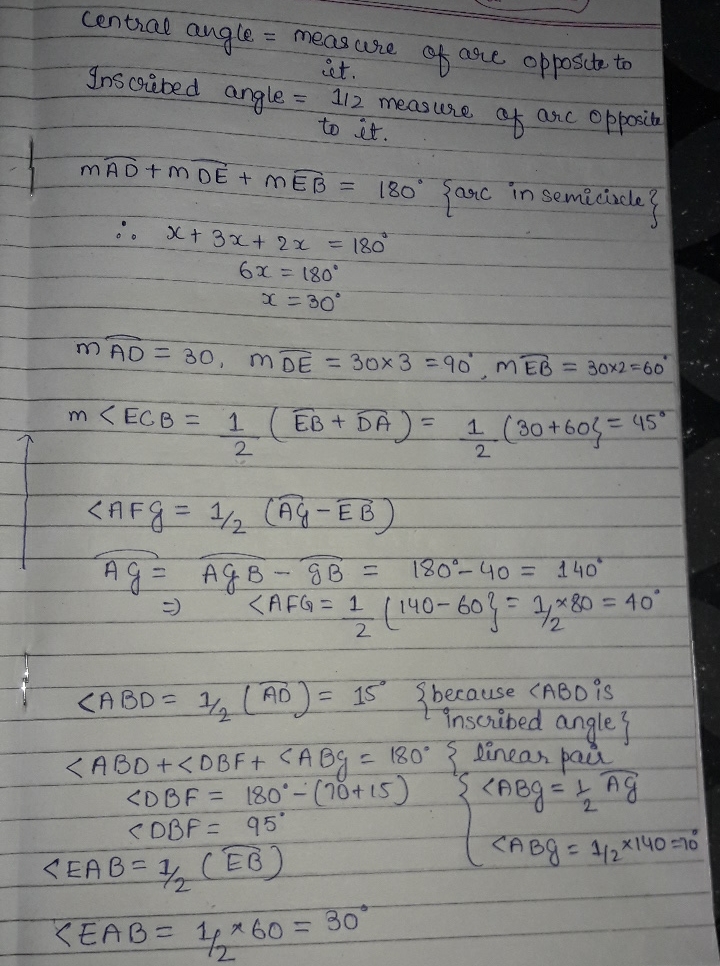 Central angle = measure of arc opposite to
it.
Inscribed angle = 1/2 measure of arc opposite
to it.
mAD + mDE + mEB = 180° {arc in semicircle}
∴ x + 3x + 2x = 180°
6x = 180°
x = 30°
mAD = 30, mDE = 30×3 = 90°, mEB = 30×2=60°
m<ECB = 1/2 (EB + DA) = 1/2 (30+60} = 45°
<AFG = 1/2 (AG - EB)
AG = AGB - GB = 180° - 40 = 140°
=> <AFG = 1/2 (140-60} = 1/2 × 80 = 40°
<ABD = 1/2 (AD) = 15° {because <ABD is
inscribed angle}
<ABD + <DBF + <ABG = 180° { linear pair
<DBF = 180° - (70+15) { <ABG = 1/2 AG
<DBF = 95°
<ABG = 1/2 × 140 = 70°
<EAB = 1/2 (EB)
<EAB = 1/2 × 60 = 30°